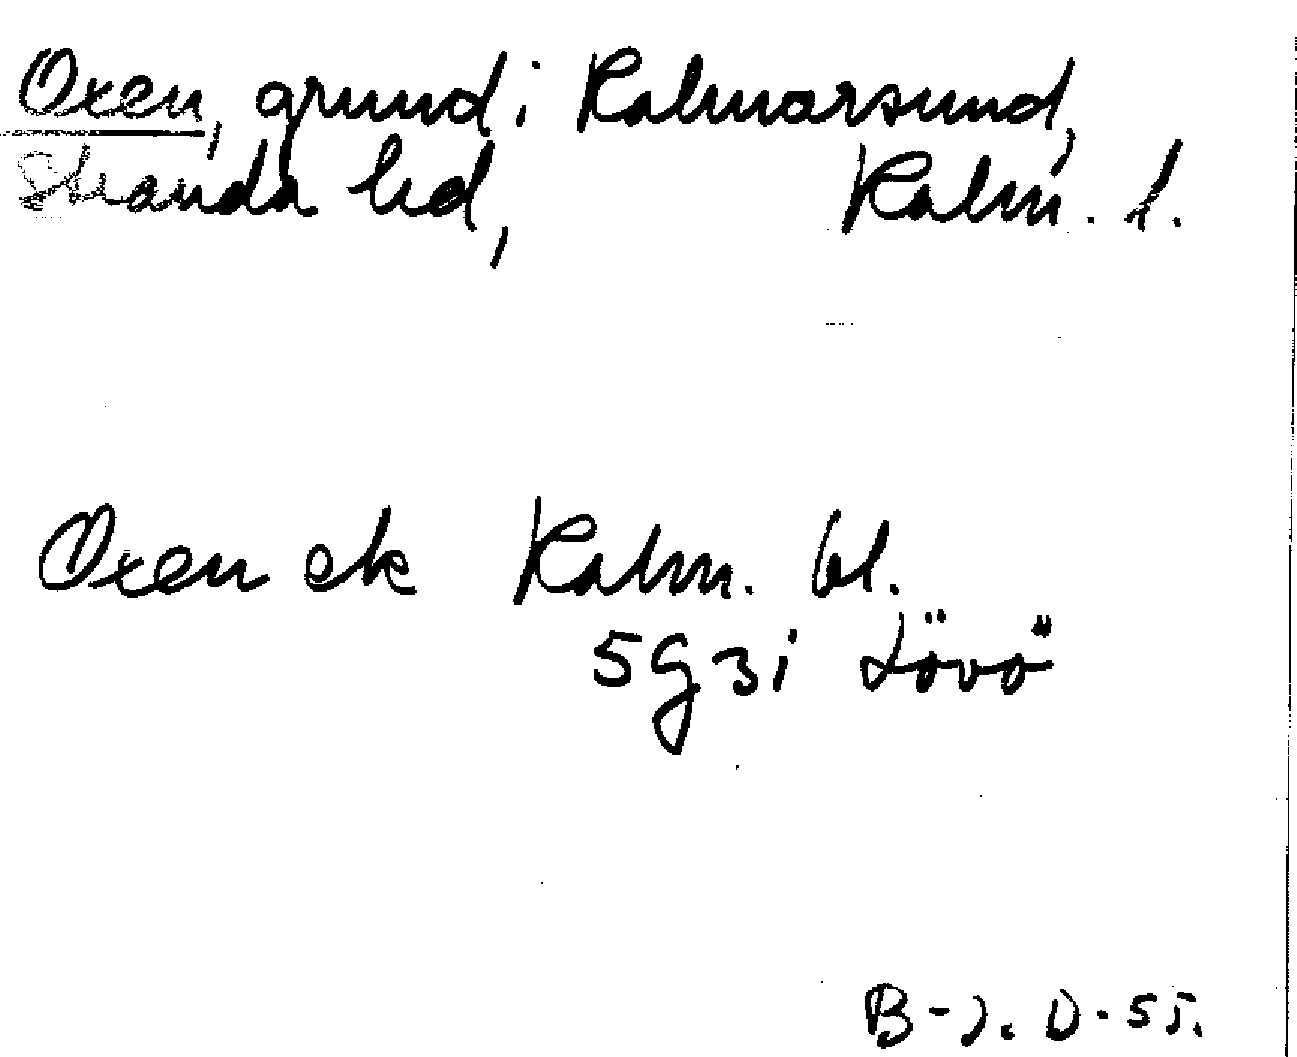 Oxen, grund i Kalmarsund,
Stranda hd, Kalm. l.
Oxen ek Kalm. bl.
5g 3i Lövö
B-J. D. 55.